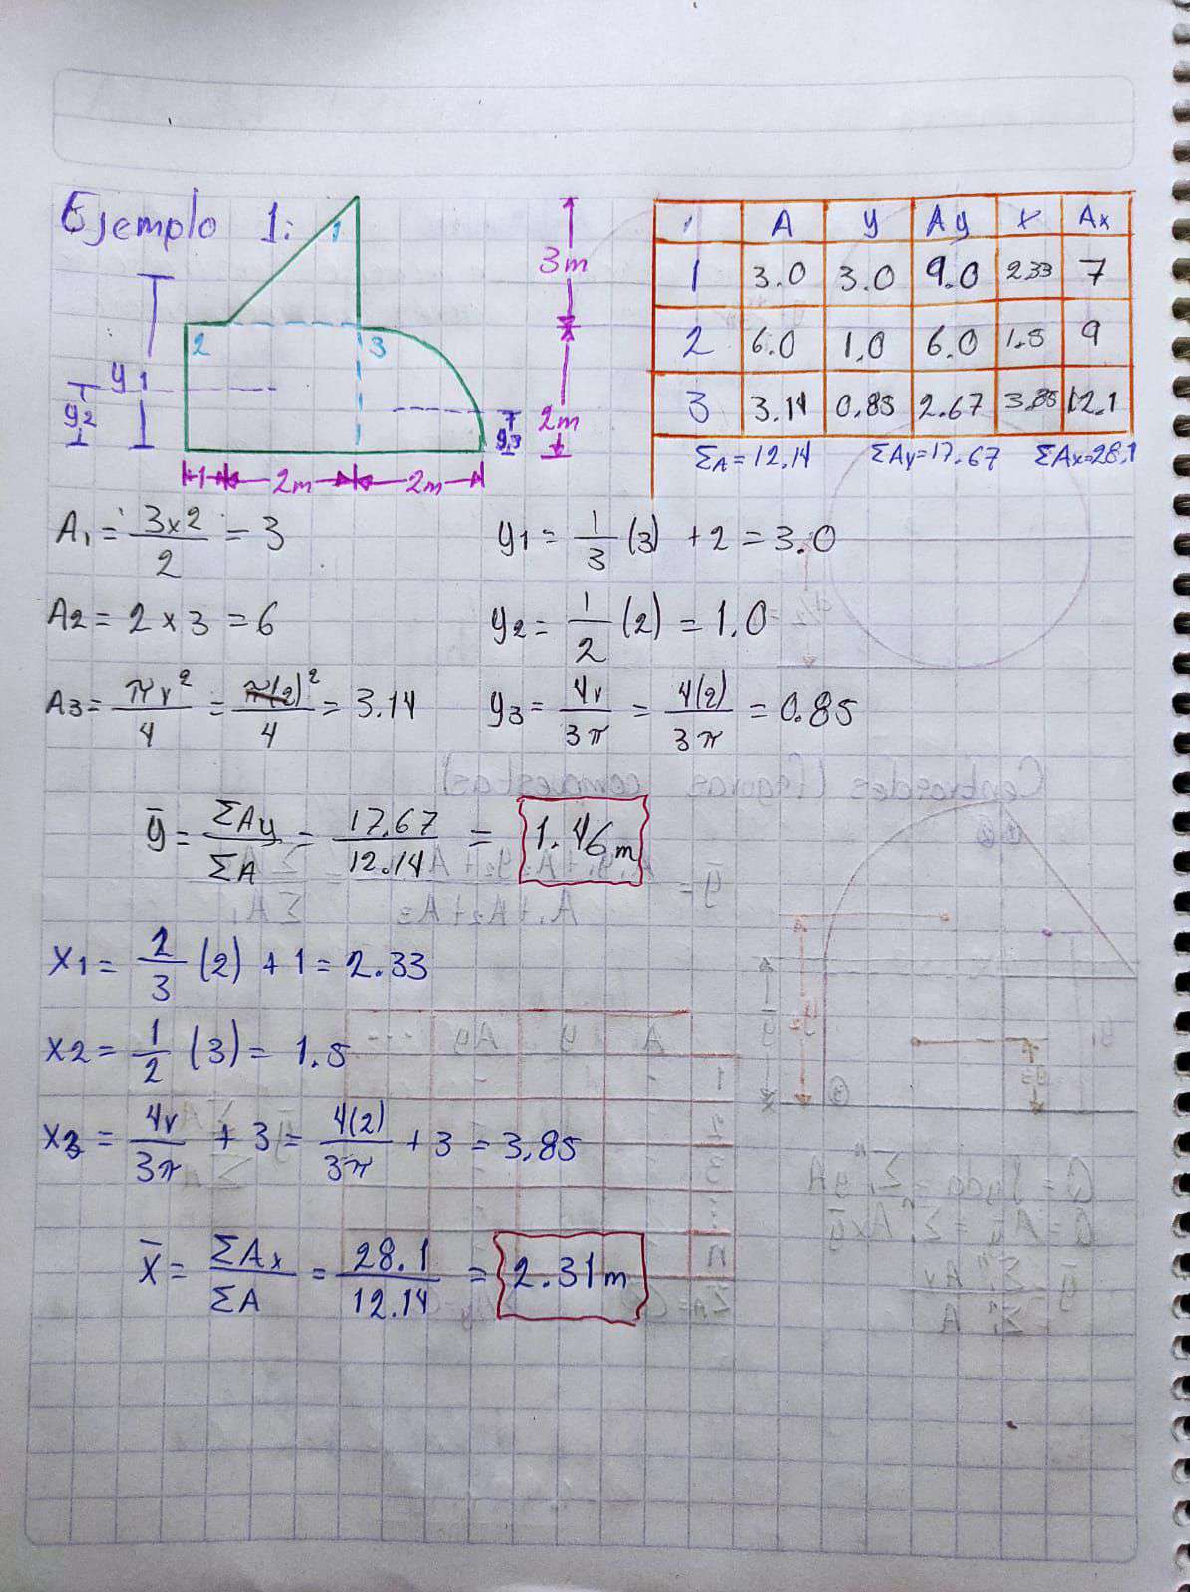 Ejemplo 1:
1
2
3
y1
y2
y3
3m
2m
1 2m 2m
i A y Ay x Ax
1 3.0 3.0 9.0 2.33 7
2 6.0 1.0 6.0 1.5 9
3 3.14 0.85 2.67 3.85 12.1
ΣA = 12.14 ΣAy = 17.67 ΣAx = 28.1
A1 = 3x2/2 = 3 y1 = 1/3 (3) + 2 = 3.0
A2 = 2 x 3 = 6 y2 = 1/2 (2) = 1.0
A3 = πr²/4 = π(2)²/4 = 3.14 y3 = 4r/3π = 4(2)/3π = 0.85
ȳ = ΣAy/ΣA = 17.67/12.14 = 1.46m
x1 = 2/3 (2) + 1 = 2.33
x2 = 1/2 (3) = 1.5
x3 = 4r/3π + 3 = 4(2)/3π + 3 = 3.85
x̄ = ΣAx/ΣA = 28.1/12.14 = 2.31m